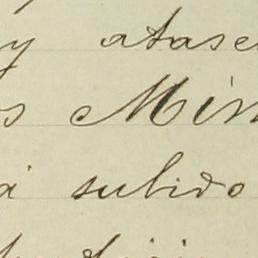 y atase
s Min
a subido